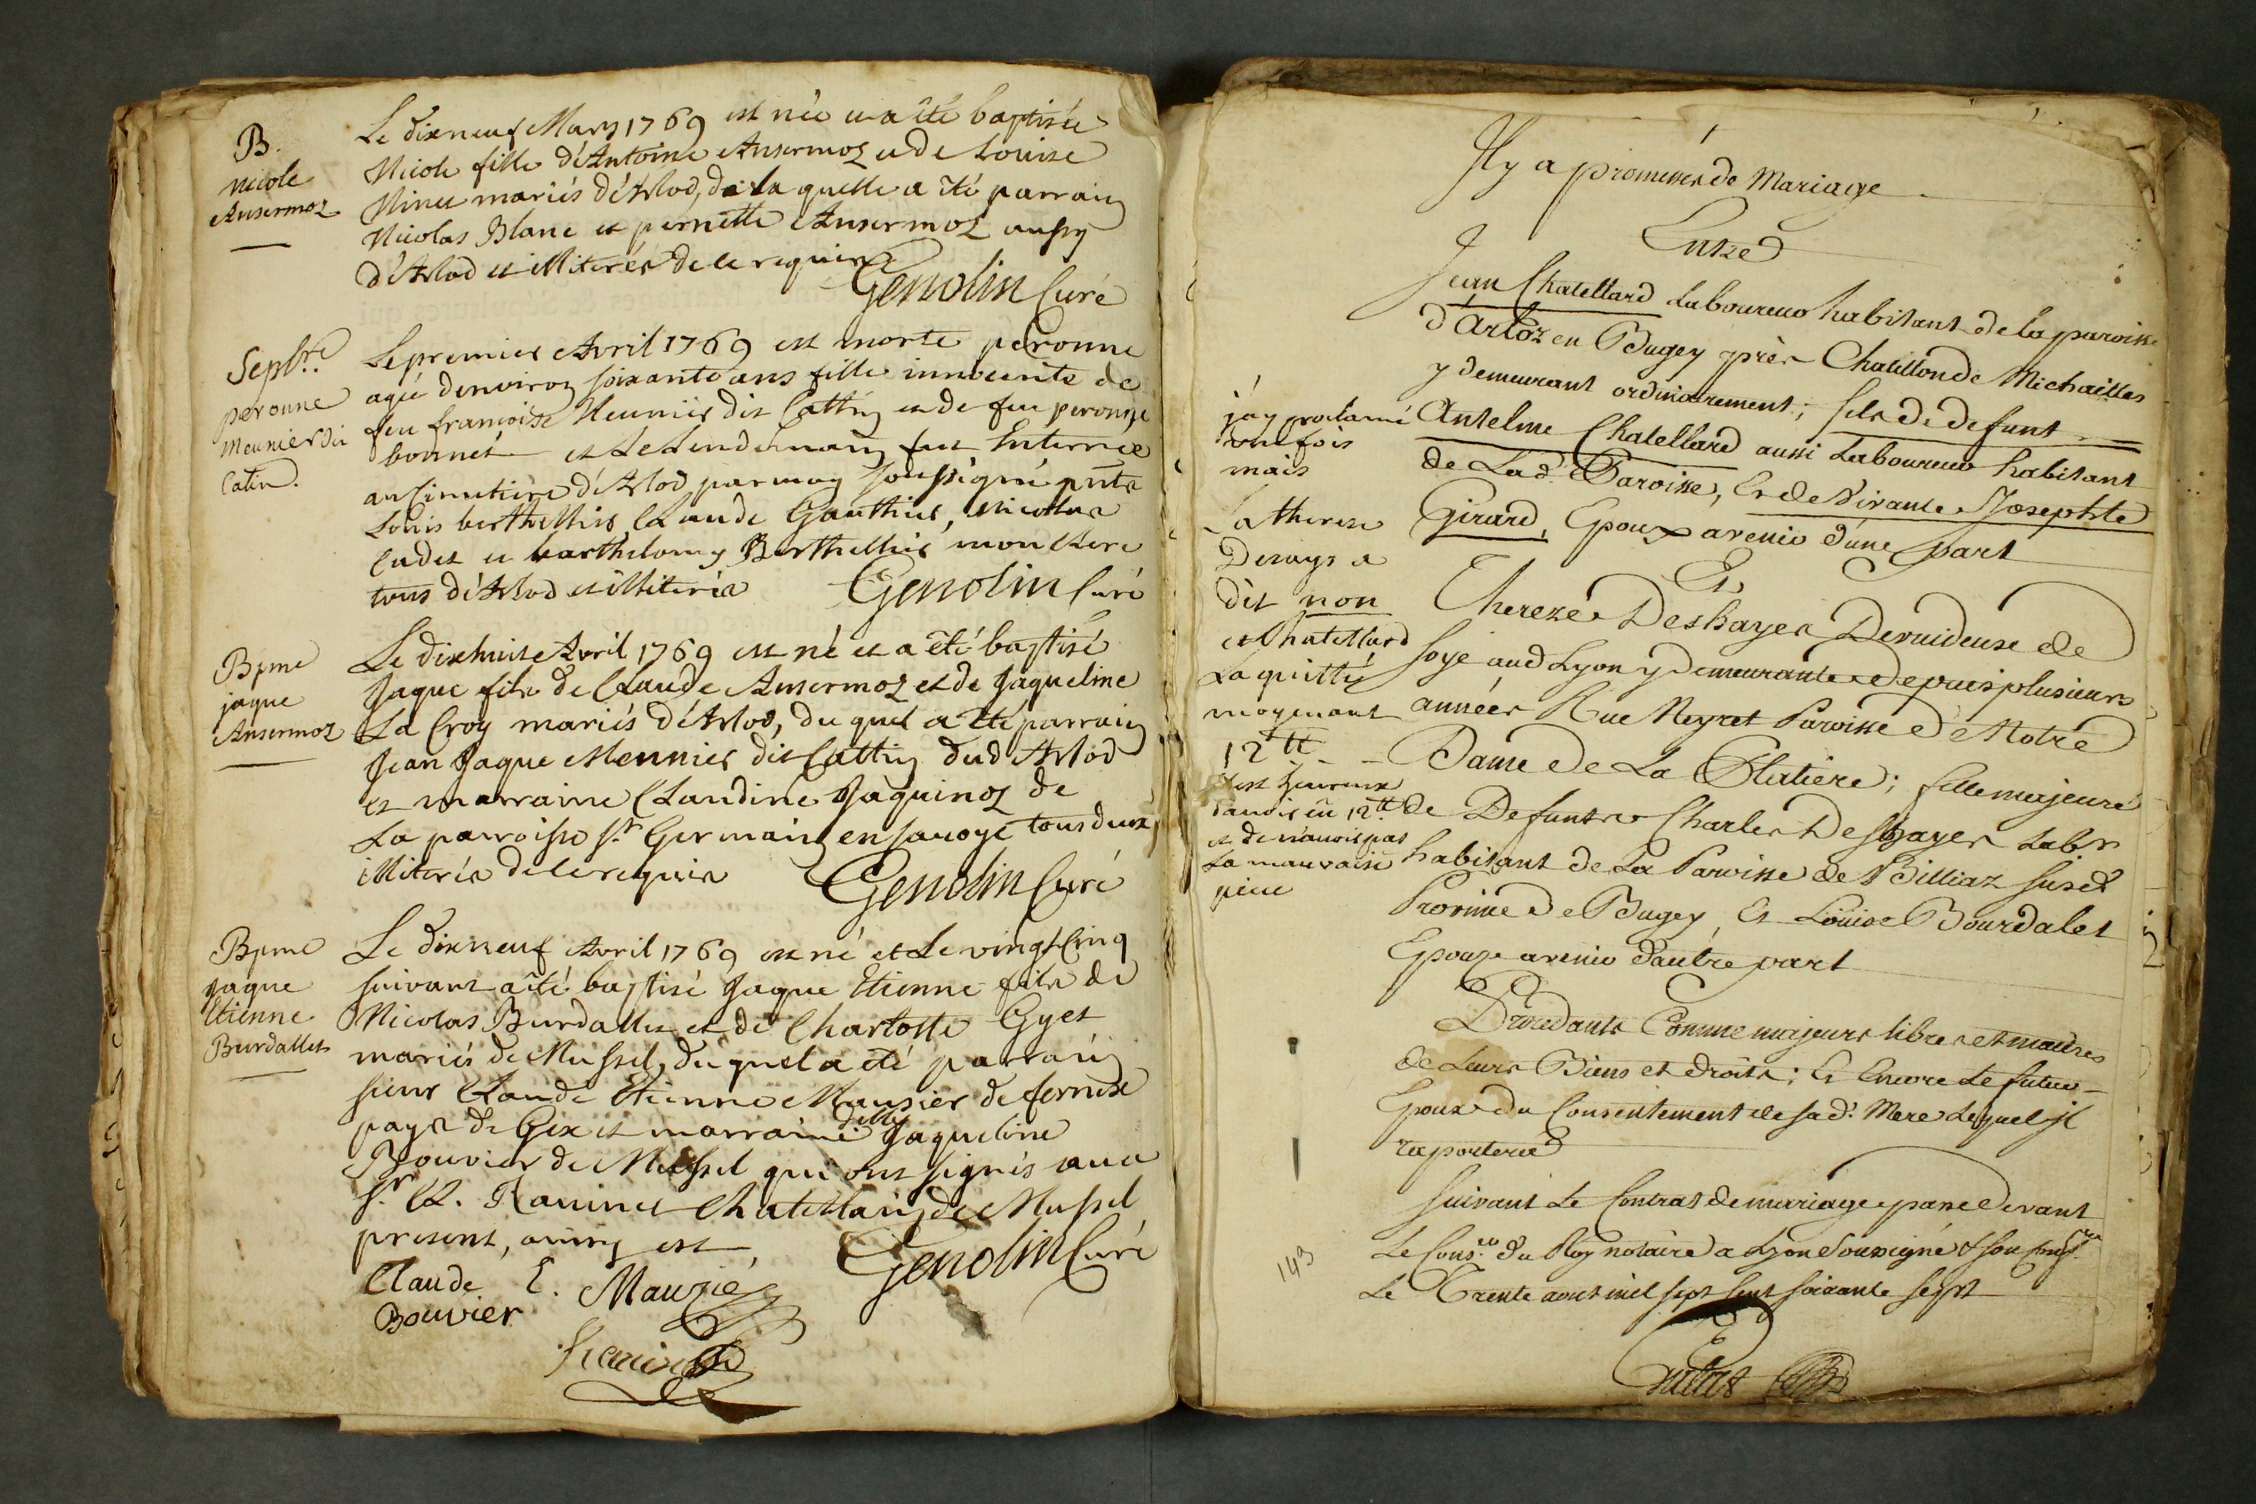 B.
nicole
Ansermoz
Le dixneuf Mars 1769 est née et a été baptisée
Nicole fille d'Antoine Ansermoz et de Louise
Ninet mariés d'Arlod, de la quelle a été parrain
Nicolas Blanc et pernette Ansermoz aussy
d'Arlod et illiterés de ce requis
Genolin Curé
Sepbre.
peronne
Meunier dit
Catin.
Le premier Avril 1769 est morte peronne
agée denviron soixante ans fille innocente de
feu françoise Meunier dit Cattin et de feu peronne
bonnet et Le Lendemain fut Enterrée
au Cimetière d'Arlod par moy soussigné pnts
Louis berthellier, Claude Gauthier, nicolas
Cudet et barthelomy Berthellier mon Clerc
tous d'Arlod et illiterés
Genolin Curé
Bpme
jaque
Ansermoz
Le dixhuit Avril 1769 est né et a été baptisé
Jaque fils de Claude Ansermoz et de Jaqueline
La Croy mariés d'Arlod, du quel a été parrain
Jean Jaque Meunier dit Cattin dud Arlod
et marraine Claudine Jaquinoz de
La parroisse st. Germain en savoye tous deux
illiterés de ce requis
Genolin Curé
Bpme
Jaque
Etienne
Burdallet
Le dixneuf Avril 1769 est né et Le vingt Cinq
suivant a été baptisé Jaque Etienne fils de
Nicolas Burdallet et de Charlotte Gyet
mariés de Mussel, du quel a été parrain
sieur Claude Etienne Mauzier de fernex
pays de Gex et marraine delle Jaqueline
Bouvier de Mussel qui ont signés avec
sr. Raminet Chatellain de Mussel
present, ainsy est
Genolin Curé
Claude E. Mauzié
Bouvier
Il y a promesses de Mariage
Entre
Jean Chatellard Laboureur habitant de la paroisse
d'Arloz en Bugey près Chatillon de Michailles
y demeurant ordinairement; fils de defunt
Antelme Chatellard aussi Laboureur habitant
de Lad. Paroisse, Et de Vivante Josephte
Girard, Epoux avenir d'une part
Et
Thereze Deshayes Devuideuse de
soye aud Lyon y demeurante depuis plusieurs
années Rue Neyret Paroisse de Notre
Dame de La Platiere; fille majeure
de Defunts Charles Deshayes Labr
habitant de La Paroisse de Billiaz susd
Province de Bugey, Et Loüise Bourdalet
Epouze avenir d'autre part
jay proclamé
une fois
mais
La therese
Desays a
dit non
et Chatellard
La quitté
moyenant
12 tt
C'est heureux
d'avoir eu 12 tt
et de n'avoir pas
La mauvaise
piece
Procedants Comme majeurs libres et maitres
de Leurs Biens et droits; Et Encore Le futur
Epoux du Consentement de sad. Mere Lequel il
raportera
suivant Le Contrat de mariage passé devant
Le Cons.er du Roy notaire a Lyon soussigné & son confrere
Le Trente aout mil sept cent soixante sept
143